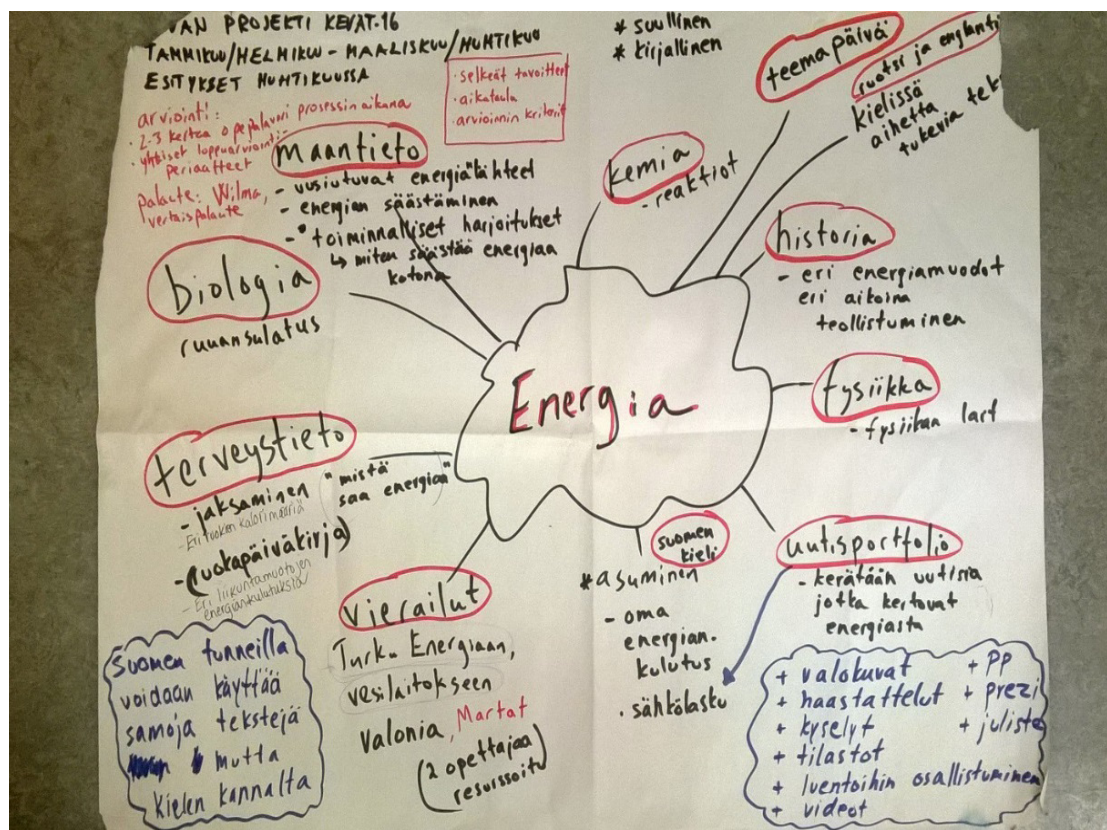 VAN PROJEKTI KEVÄT-16
TAMMIKUU/HELMIKUU - MAALISKUU/HUHTIKUU
ESITYKSET HUHTIKUUSSA
* suullinen
* kirjallinen
teemapäivä
ruotsi ja englanti
kielissä
aihetta
tukevia
· selkeät tavoitteet
· aikataulu
· arvioinnin kriteerit
arviointi:
· 2-3 kertaa opepalaveri prosessin aikana
· yhteiset loppuarviointi-
periaatteet
palaute: Wilma,
vertaispalaute
maantieto
- uusiutuvat energialähteet
- energian säästäminen
- toiminnalliset harjoitukset
↳ miten säästää energiaa
kotona
kemia
- reaktiot
historia
- eri energiamuodot
eri aikoina
teollistuminen
biologia
ruuansulatus
Energia
fysiikka
- fysiikan lait
terveystieto
- jaksaminen
"mistä
saa energian"
- Eri ruokien kalorimääriä
- (ruokapäiväkirja)
- Eri liikuntamuotojen
energiankulutuksia
suomen
kieli
* asuminen
- oma
energian.
kulutus
· sähkölasku
uutisportfolio
- kerätään uutisia
jotka kertovat
energiasta
vierailut
Turku Energiaan,
vesilaitokseen
valonia, Martat
(2 opettajaa
resurssoitu)
Suomen tunneilla
voidaan käyttää
samoja tekstejä
mutta
kielen kannalta
+ valokuvat
+ haastattelut
+ kyselyt
+ tilastot
+ luentoihin osallistuminen
+ videot
+ PP
+ prezi
+ juliste